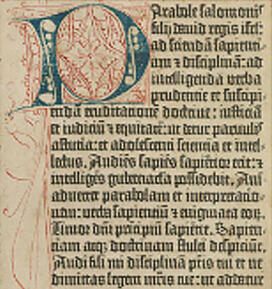 Parabole salomonis
filij david regis isrl':
ad sciendā sapienti-
am & disciplinam: ad
intelligenda verba
prudentie et suscipi-
endā eruditationē doctrine: iusticiā
et iudiciū & equitatē: ut detur parvulis
astutia: et adolescenti sciencia et intel-
lectus. Audiēs sapiēs sapiētior erit: &
intelligēs gubernacla possidebit. Ani-
advertet parabolam et interpretacio-
nem: verba sapientiū & enigmata eoꝝ.
Timor dñi principiū sapiētie. Sapien-
ciam atqꝫ doctrinam stulti despiciūt.
Audi fili mi disciplinā pr̄is tui et ne
dimittas legem mr̄is tue: ut addatur